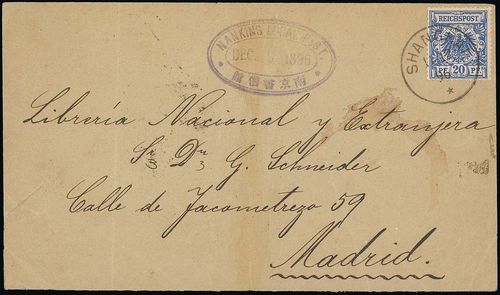 NANKING LOCAL POST
DEC 1896
南京書信館
REICHSPOST
20 PF
SHANG
Librería Nacional y Extranjera
Sr Dn G. Schneider
Calle de Jacometrezo 59
Madrid.